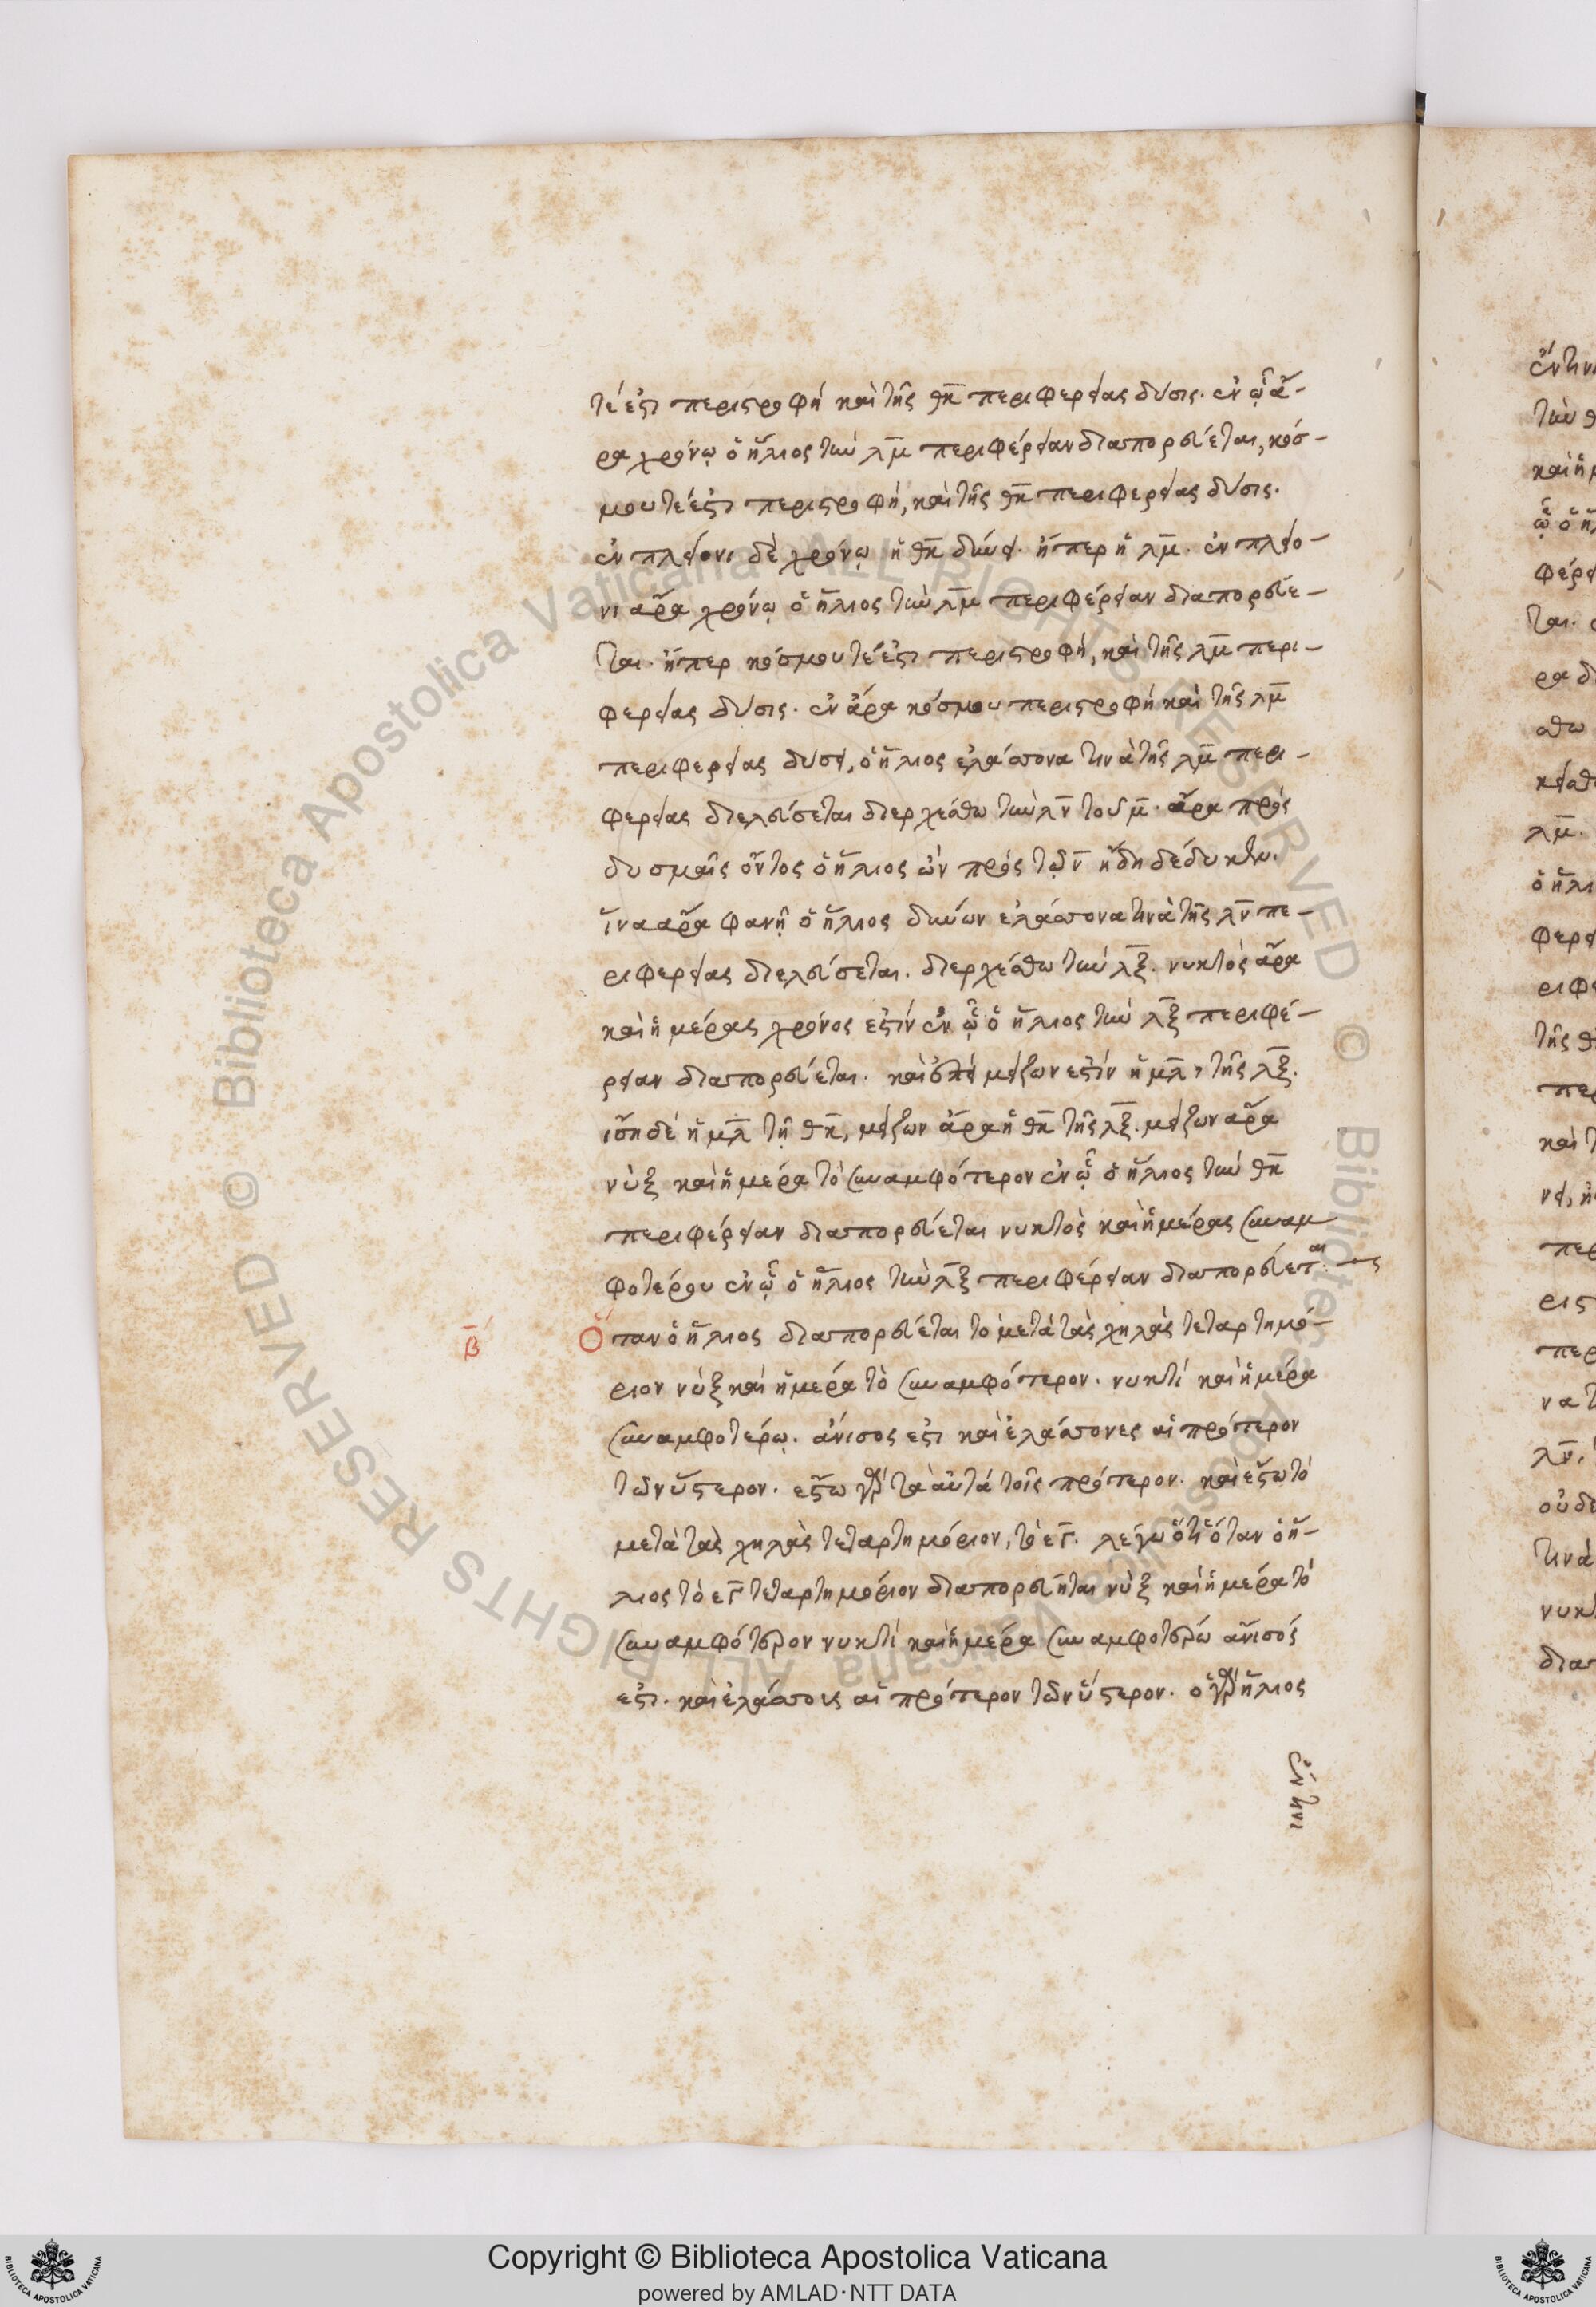 τέ ἐστι περιστροφὴ καὶ τῆς θκ περιφερείας δύσις. ἐν ᾧ ἄ-
ρα χρόνῳ ὁ ἥλιος τὴν λμ περιφέρειαν διαπορεύεται, κόσ-
μου τέ ἐστι περιστροφή, καὶ τῆς θκ περιφερείας δύσις.
ἐν πλείονι δὲ χρόνῳ ἡ θκ δύνει. ἤπερ ἡ λμ. ἐν πλείο-
νι ἄρα χρόνῳ ὁ ἥλιος τὴν λμ περιφέρειαν διαπορεύε-
ται. ἤπερ κόσμου τέ ἐστι περιστροφή, καὶ τῆς λμ περι-
φερείας δύσις. ἐν ἄρα κόσμου περιστροφῇ καὶ τῆς λμ
περιφερείας δύσει, ὁ ἥλιος ἐλάσσονα τινὰ τῆς λμ περι-
φερείας διελεύσεται διερχέσθω τὴν λν τοῦ μ. ἄρα πρὸς
δυσμαῖς ὄντος ὁ ἥλιος ὢν πρὸς τῷ ν ἤδη δέδυκεν.
ἵνα ἄρα φανῇ ὁ ἥλιος δύνων ἐλάσσονα τινὰ τῆς λν πε-
ριφερείας διελεύσεται. διερχέσθω τὴν λξ. νυκτὸς ἄρα
καὶ ἡμέρας χρόνος ἐστίν ἐν ᾧ ὁ ἥλιος τὴν λξ περιφέ-
ρειαν διαπορεύεται. καὶ ἐπεὶ μείζων ἐστίν ἡ μλ τῆς λξ.
ἴση δέ ἡ μλ τῇ θκ, μείζων ἄρα ἡ θκ τῆς λξ. μείζων ἄρα
νὺξ καὶ ἡμέρα τὸ συναμφότερον ἐν ᾧ ὁ ἥλιος τὴν θκ
περιφέρειαν διαπορεύεται νυκτὸς καὶ ἡμέρας συναμ
φοτέρου ἐν ᾧ ὁ ἥλιος τὴν λξ περιφέρειαν διαπορεύεται.
β Ὅταν ὁ ἥλιος διαπορεύεται τὸ μετὰ τὰς χηλὰς τεταρτημό-
ριον νὺξ καὶ ἡμέρα τὸ συναμφότερον. νυκτὶ καὶ ἡμέρα
συναμφοτέρῳ. ἄνισος ἐστι καὶ ἐλάσσονες αἱ πρότερον
τῶν ὕστερον. ἔστω γὰρ τὰ αὐτά τοῖς πρότερον. καὶ ἔστω τὸ
μετὰ τὰς χηλὰς τεταρτημόριον, τὸ εγ. λέγω ὅτι ὅταν ὁ ἥ-
λιος τὸ εγ τεταρτημόριον διαπορεύηται νὺξ καὶ ἡμέρα τὸ
συναμφότερον νυκτὶ καὶ ἡμέρα συναμφοτέρω ἄνισός
ἐστι. καὶ ἐλάσσους αἱ πρότερον τῶν ὕστερον. ὁ γὰρ ἥλιος
ἔν τινι
Copyright © Biblioteca Apostolica Vaticana
powered by AMLAD·NTT DATA